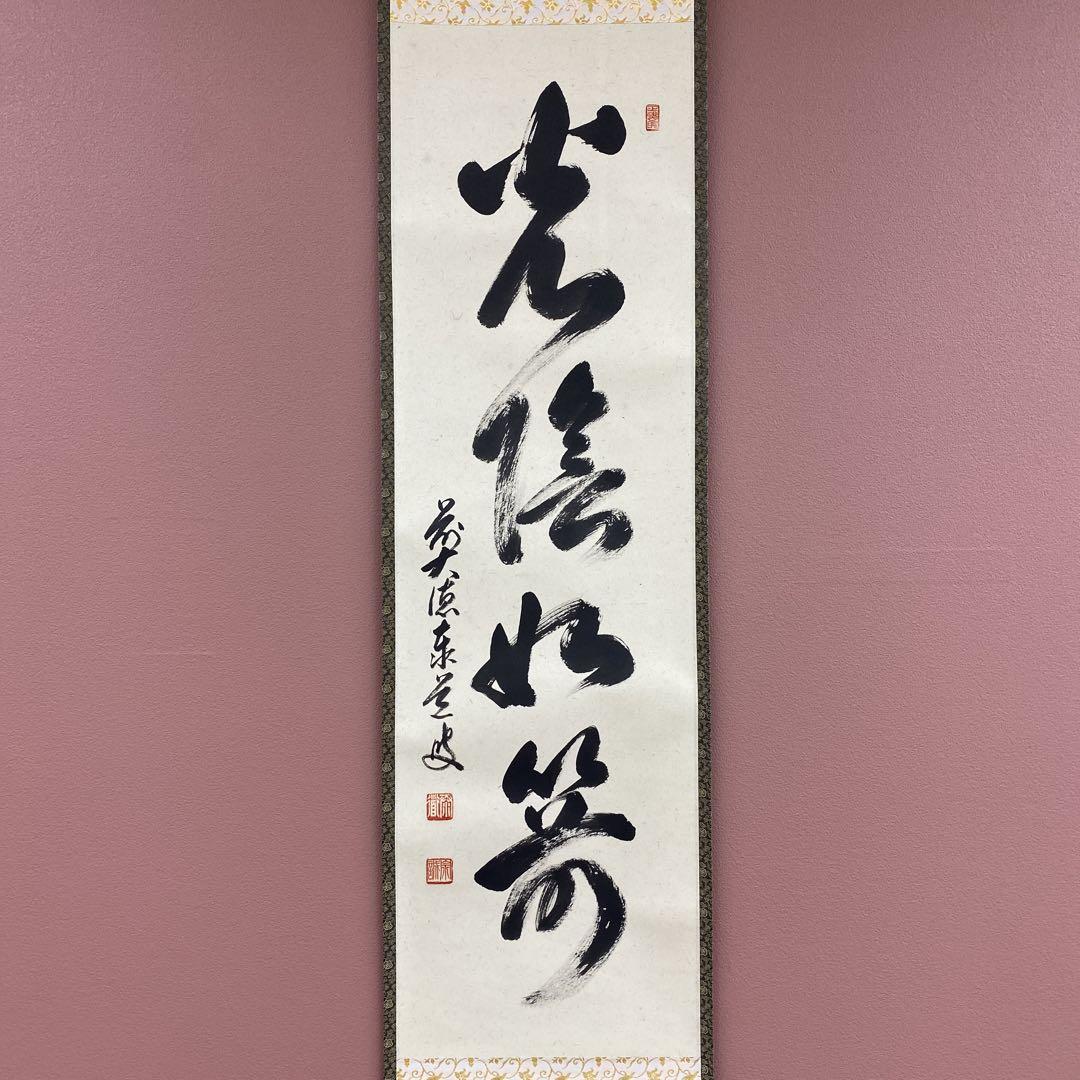 光陰如箭
前大徳泰道叟